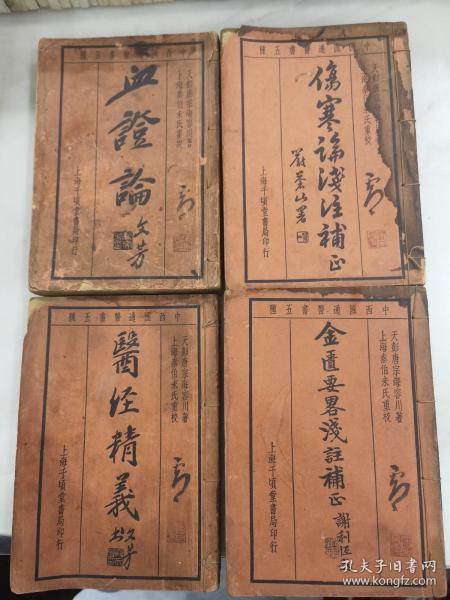 種五書醫通匯西中
天彭唐宗海容川著
上海秦伯未氏重校
血證論
文芳
上海千頃堂書局印行
種五書醫通匯西中
天彭唐
氏重校
傷寒論淺注補正
嚴蒼山署
上海千頃堂書局印行
種五書醫通匯西中
天彭唐宗海容川著
上海秦伯未氏重校
醫經精義
文芳
上海千頃堂書局印行
種五書醫通匯西中
天彭唐宗海容川著
上海秦伯未氏重校
金匱要畧淺註補正
謝利恒
上海千頃堂書局印行
孔夫子旧书网